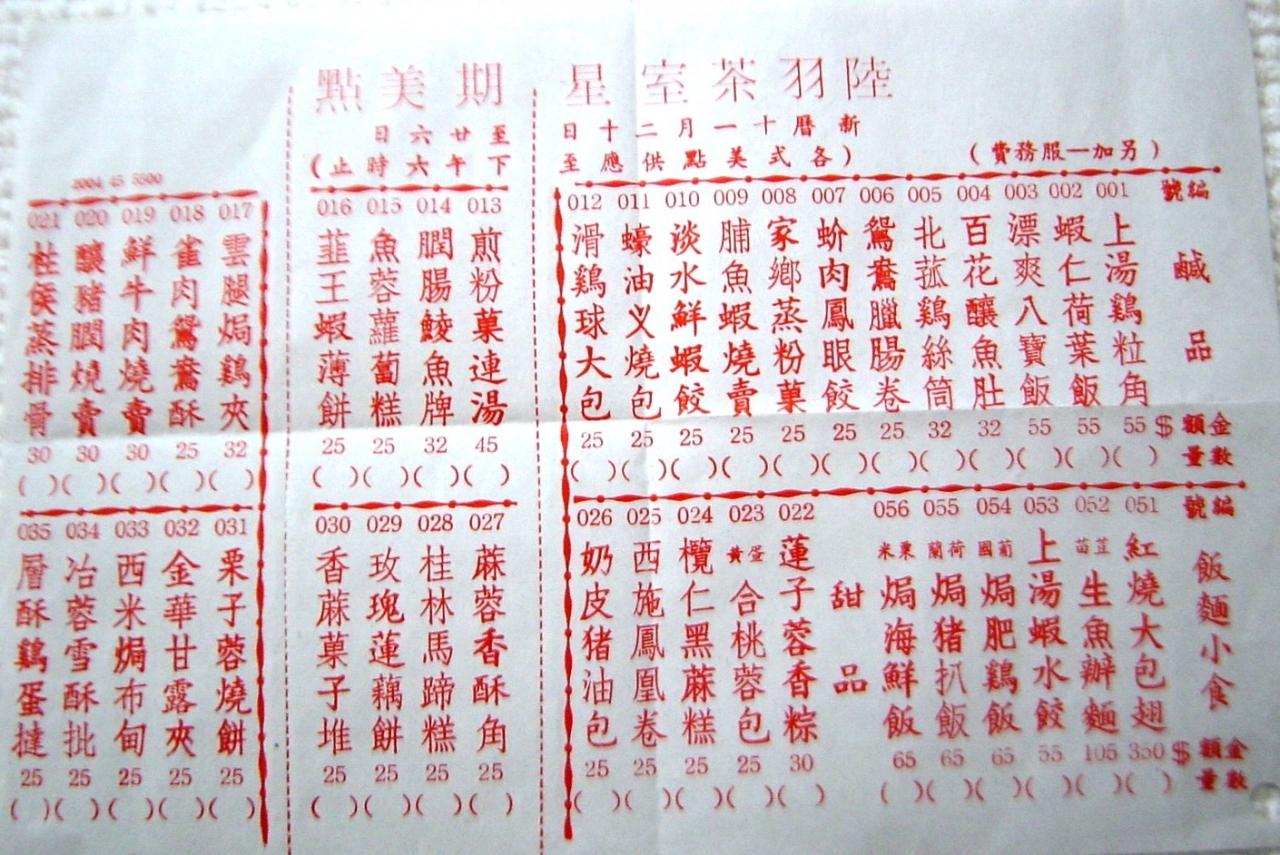 陸羽茶室星期美點
新曆十一月二十日至廿六日
(另加一服務費)
(各式美點供應至下午六時止)
2004 45 5500
編號
鹹品
金額 $
數量
001 上湯鷄粒角 55 ( )
002 蝦仁荷葉飯 55 ( )
003 漂爽八寶飯 55 ( )
004 百花釀魚肚 32 ( )
005 北菰鷄絲筒 32 ( )
006 鴛鴦臘腸卷 25 ( )
007 蚧肉鳳眼餃 25 ( )
008 家鄉蒸粉菓 25 ( )
009 脯魚蝦燒賣 25 ( )
010 淡水鮮蝦餃 25 ( )
011 蠔油义燒包 25 ( )
012 滑鷄球大包 25 ( )
013 煎粉菓連湯 45 ( )
014 膶腸鯪魚牌 32 ( )
015 魚蓉蘿蔔糕 25 ( )
016 韮王蝦薄餅 25 ( )
017 雲腿焗鷄夾 32 ( )
018 雀肉鴛鴦酥 25 ( )
019 鮮牛肉燒賣 30 ( )
020 釀豬膶燒賣 30 ( )
021 柱侯蒸排骨 30 ( )
編號
飯麵小食
金額 $
數量
051 紅燒大包翅 350 ( )
052 苗荳生魚辦麵 105 ( )
053 上湯蝦水餃 55 ( )
054 葡國焗肥鷄飯 65 ( )
055 荷蘭焗猪扒飯 65 ( )
056 粟米焗海鮮飯 65 ( )
甜品
022 蓮子蓉香粽 30 ( )
023 蛋黃合桃蓉包 25 ( )
024 欖仁黑蔴糕 25 ( )
025 西施鳳凰卷 25 ( )
026 奶皮猪油包 25 ( )
027 蔴蓉香酥角 25 ( )
028 桂林馬蹄糕 25 ( )
029 玫瑰蓮藕餅 25 ( )
030 香蔴菓子堆 25 ( )
031 栗子蓉燒餅 25 ( )
032 金華甘露夾 25 ( )
033 西米焗布甸 25 ( )
034 冶蓉雪酥批 25 ( )
035 層酥鷄蛋撻 25 ( )